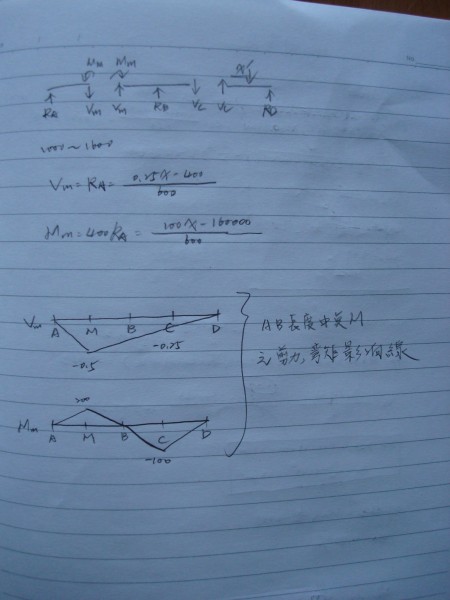 Mm Mm
x
RA Vm Vm RB Vc Vc RD
1000~1600
Vm=RA= 0.25x-400 / 600
Mm=400RA= 100x-160000 / 600
Vm A M B C D
-0.5 -0.25
AB長度中點M
之剪力,彎矩影响線
200
Mm A M B C D
-100